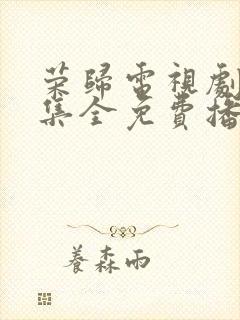 荣歸電視劇
集全免費播
養森雨